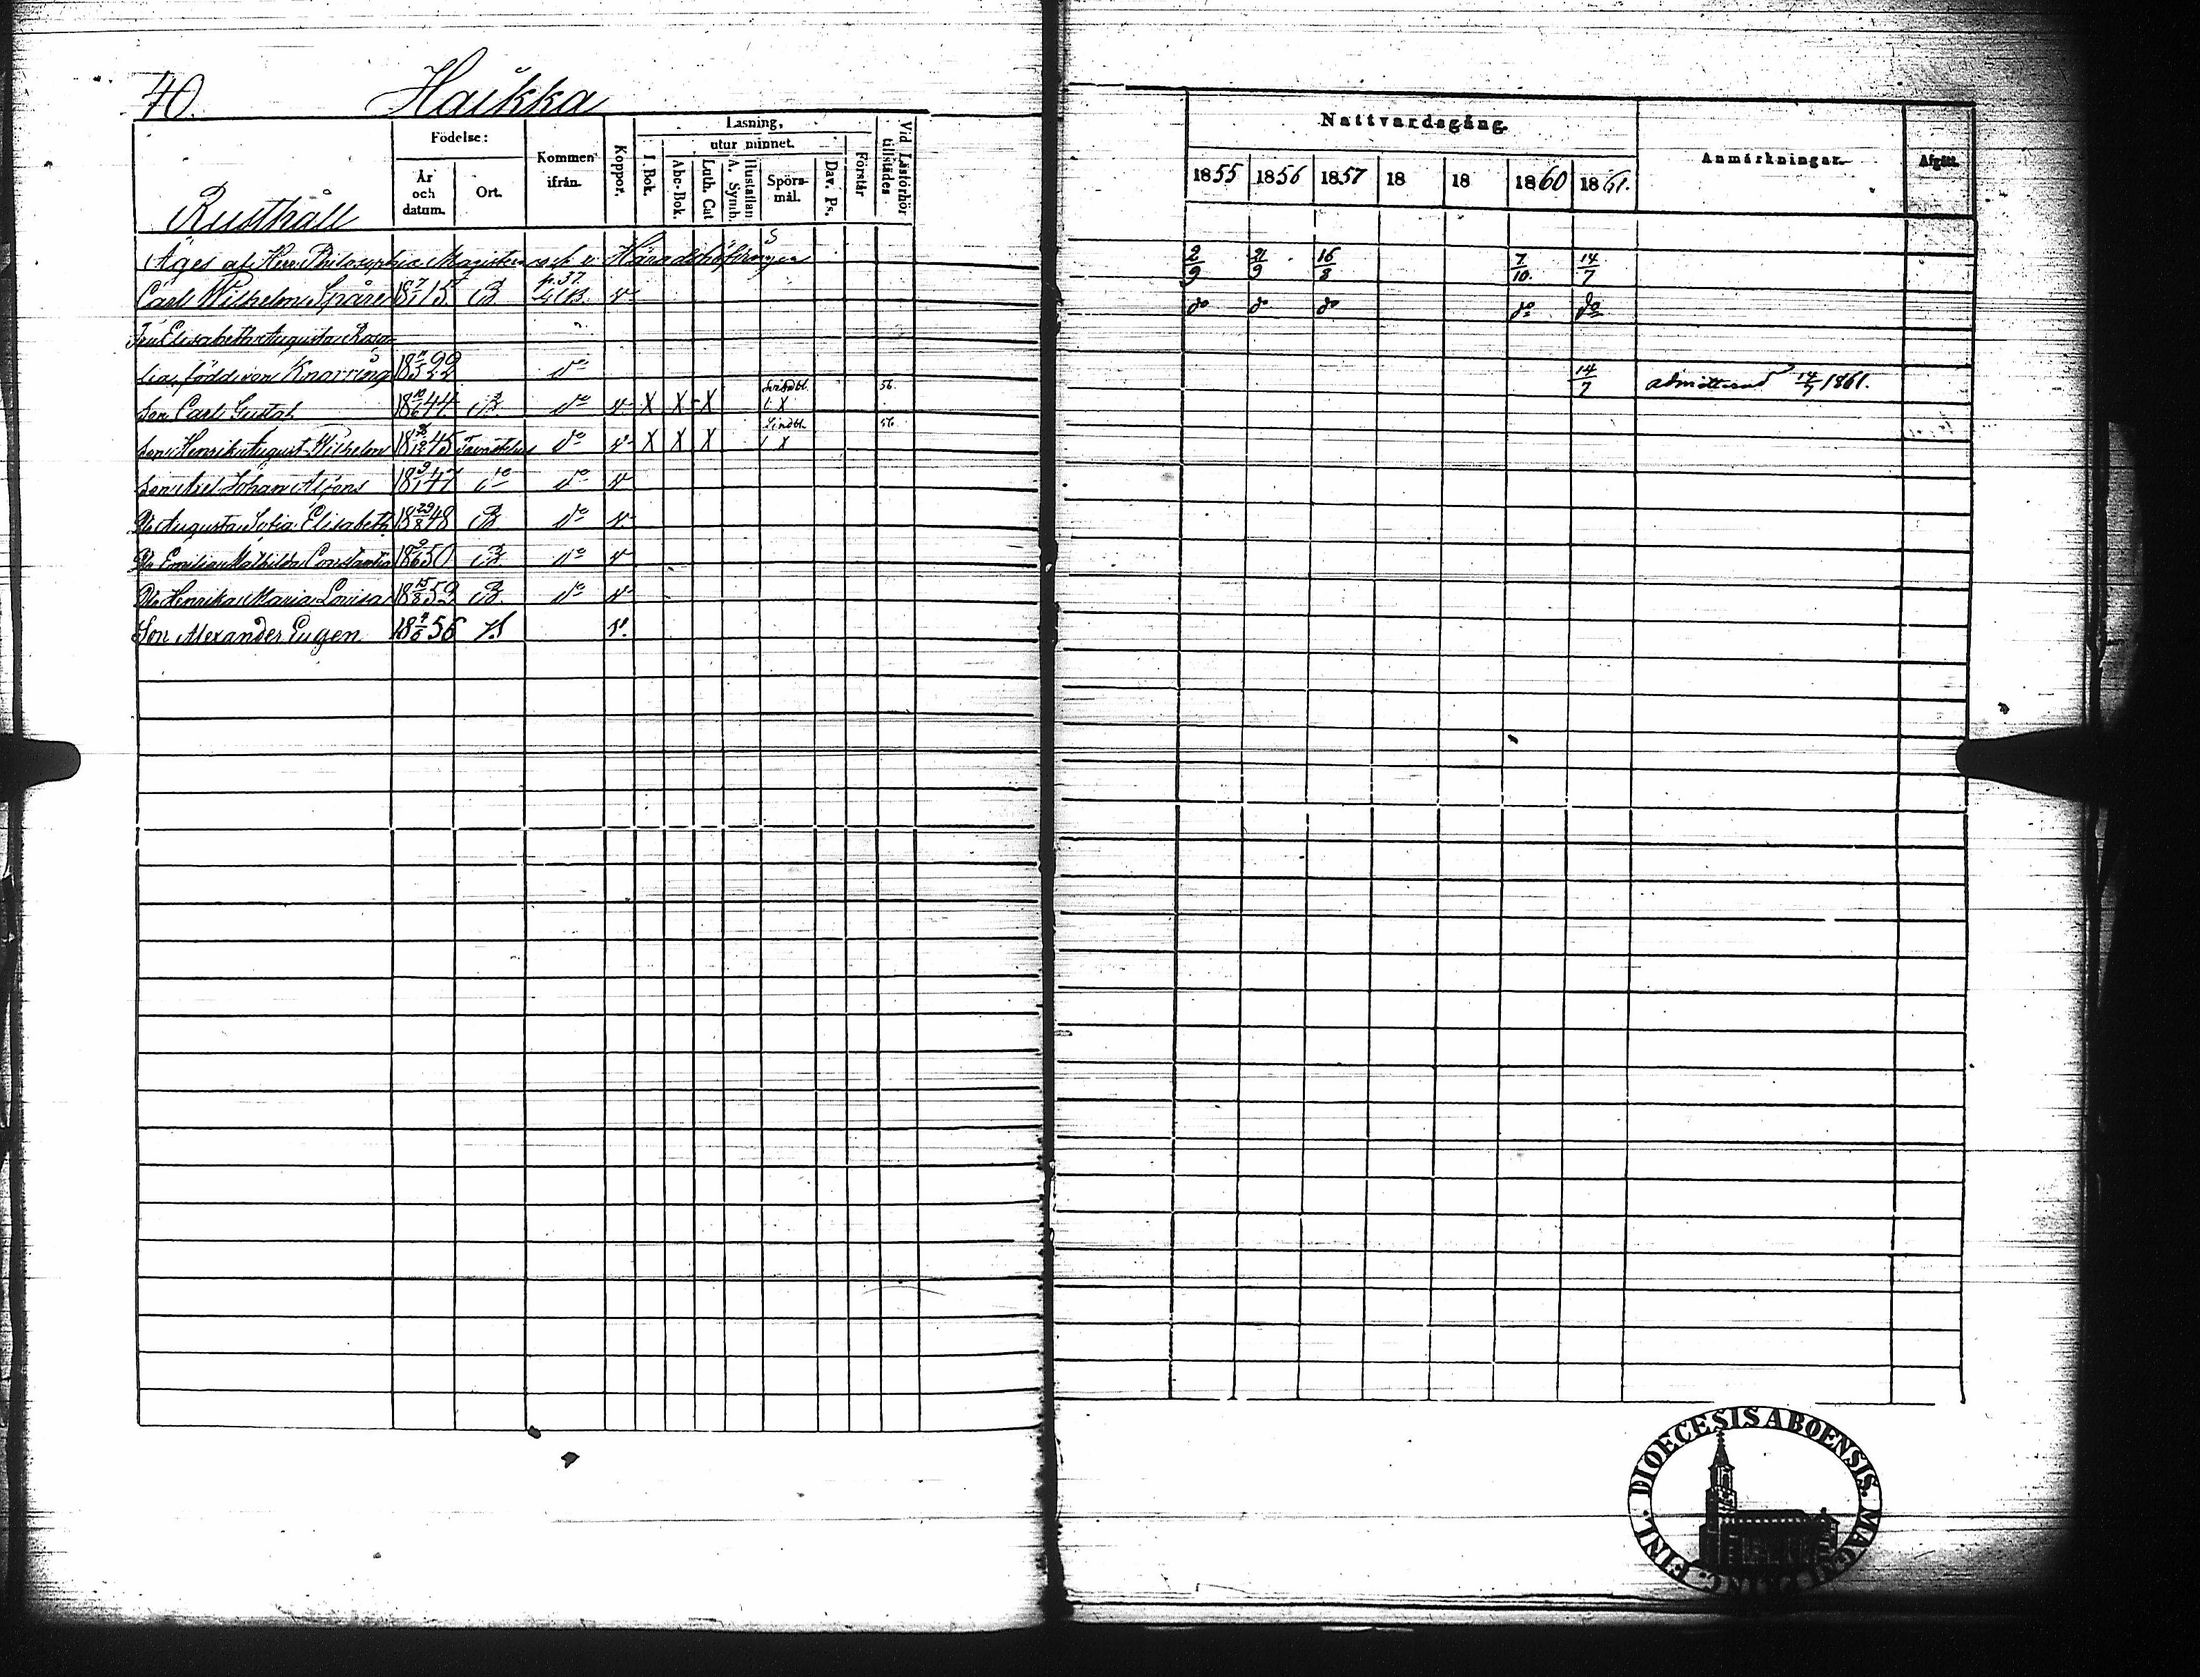 40. Haikka
Rusthåll
Födelse:
År och datum.
Ort.
Kommen ifrån.
Koppor.
Läsning,
I. Bok.
utur minnet.
Abc-Bok.
Luth. Cat
A. Symb.
Hustaflan
Spörsmål.
Dav. Ps.
Förstår
Vid Läsförhör tillstädes
Äges af Herr Philosophiæ Magistern och v. Häradshöfdingen
Carl Wilhelm Spåre 18 7/1 15 B p. 37 v
Fru Elisabeth Augusta Rosa-
lia, född von Knorring 18 11/3 22 do
Son Carl Gustaf 18 10/6 44 B do v X X X Lindbl. X 56
Son Henrik August Wilhelm 18 45 do v X X X Lindbl. X 56
Son Axel Johan Alfons 18 9/1 47 do do v
Dr Augusta Sofia Elisabeth 18 29/8 48 B do v
Dr Emilia Mathilda Constantia 18 9/6 50 B do v
Dr Henrika Maria Lovisa 18 15/8 52 B do v
Son Alexander Eugen 18 56 v.
Nattvardsgång.
1855 1856 1857 18 18 1860 1861.
Anmärkningar.
Afgått.
2/9 21/9 16/8 7/10 14/7
do do do do do
14/7 admitterad 14/7 1861.
DIOECESIS ABOENSIS. MAGNI PRINC. FINL.